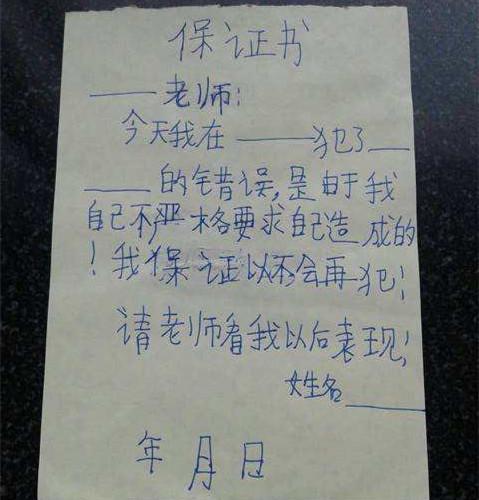 保证书
____老师:
今天我在____犯了__
____的错误,是由于我
自己不严格要求自己造成的
!我保证以不会再犯!
请老师看我以后表现!
姓名____
年月日